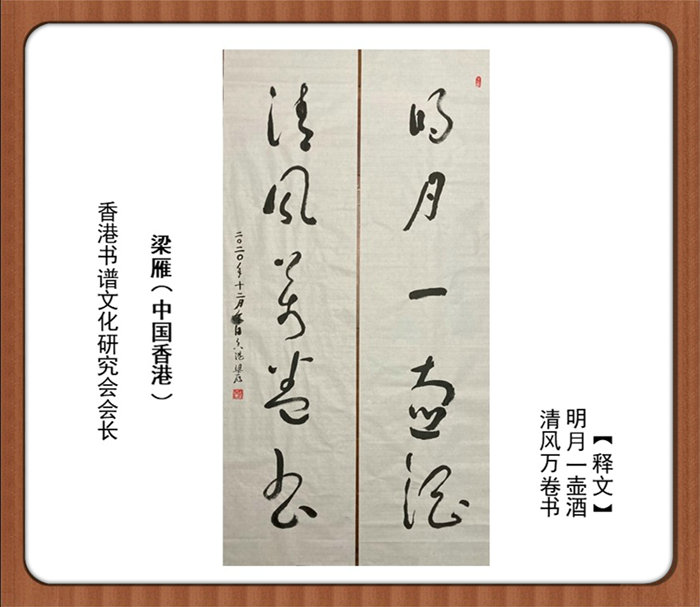 【释文】
明月一壶酒
清风万卷书
明月一壶酒
清风万卷书
二〇二〇年十二月
香港梁雁
梁雁(中国香港)
香港书谱文化研究会会长